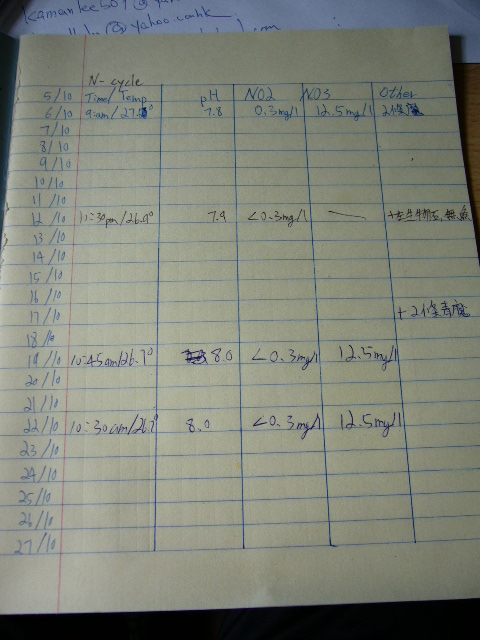 kamanlee501@y
@yahoo.com.hk
N-cycle
5/10 Time/Temp pH NO2 NO3 Other
6/10 9:am/27. 7.8 0.3mg/l 12.5mg/l 2條魔
7/10
8/10
9/10
10/10
11/10
12/10 11:30pm/26.9° 7.9 <0.3mg/l
13/10
14/10
15/10
16/10
17/10 +2條青魔
18/10
19/10 10:45am/26.7° 8.0 <0.3mg/l 12.5mg/l
20/10
21/10
22/10 10:30am/26.7° 8.0 <0.3mg/l 12.5mg/l
23/10
24/10
25/10
26/10
27/10